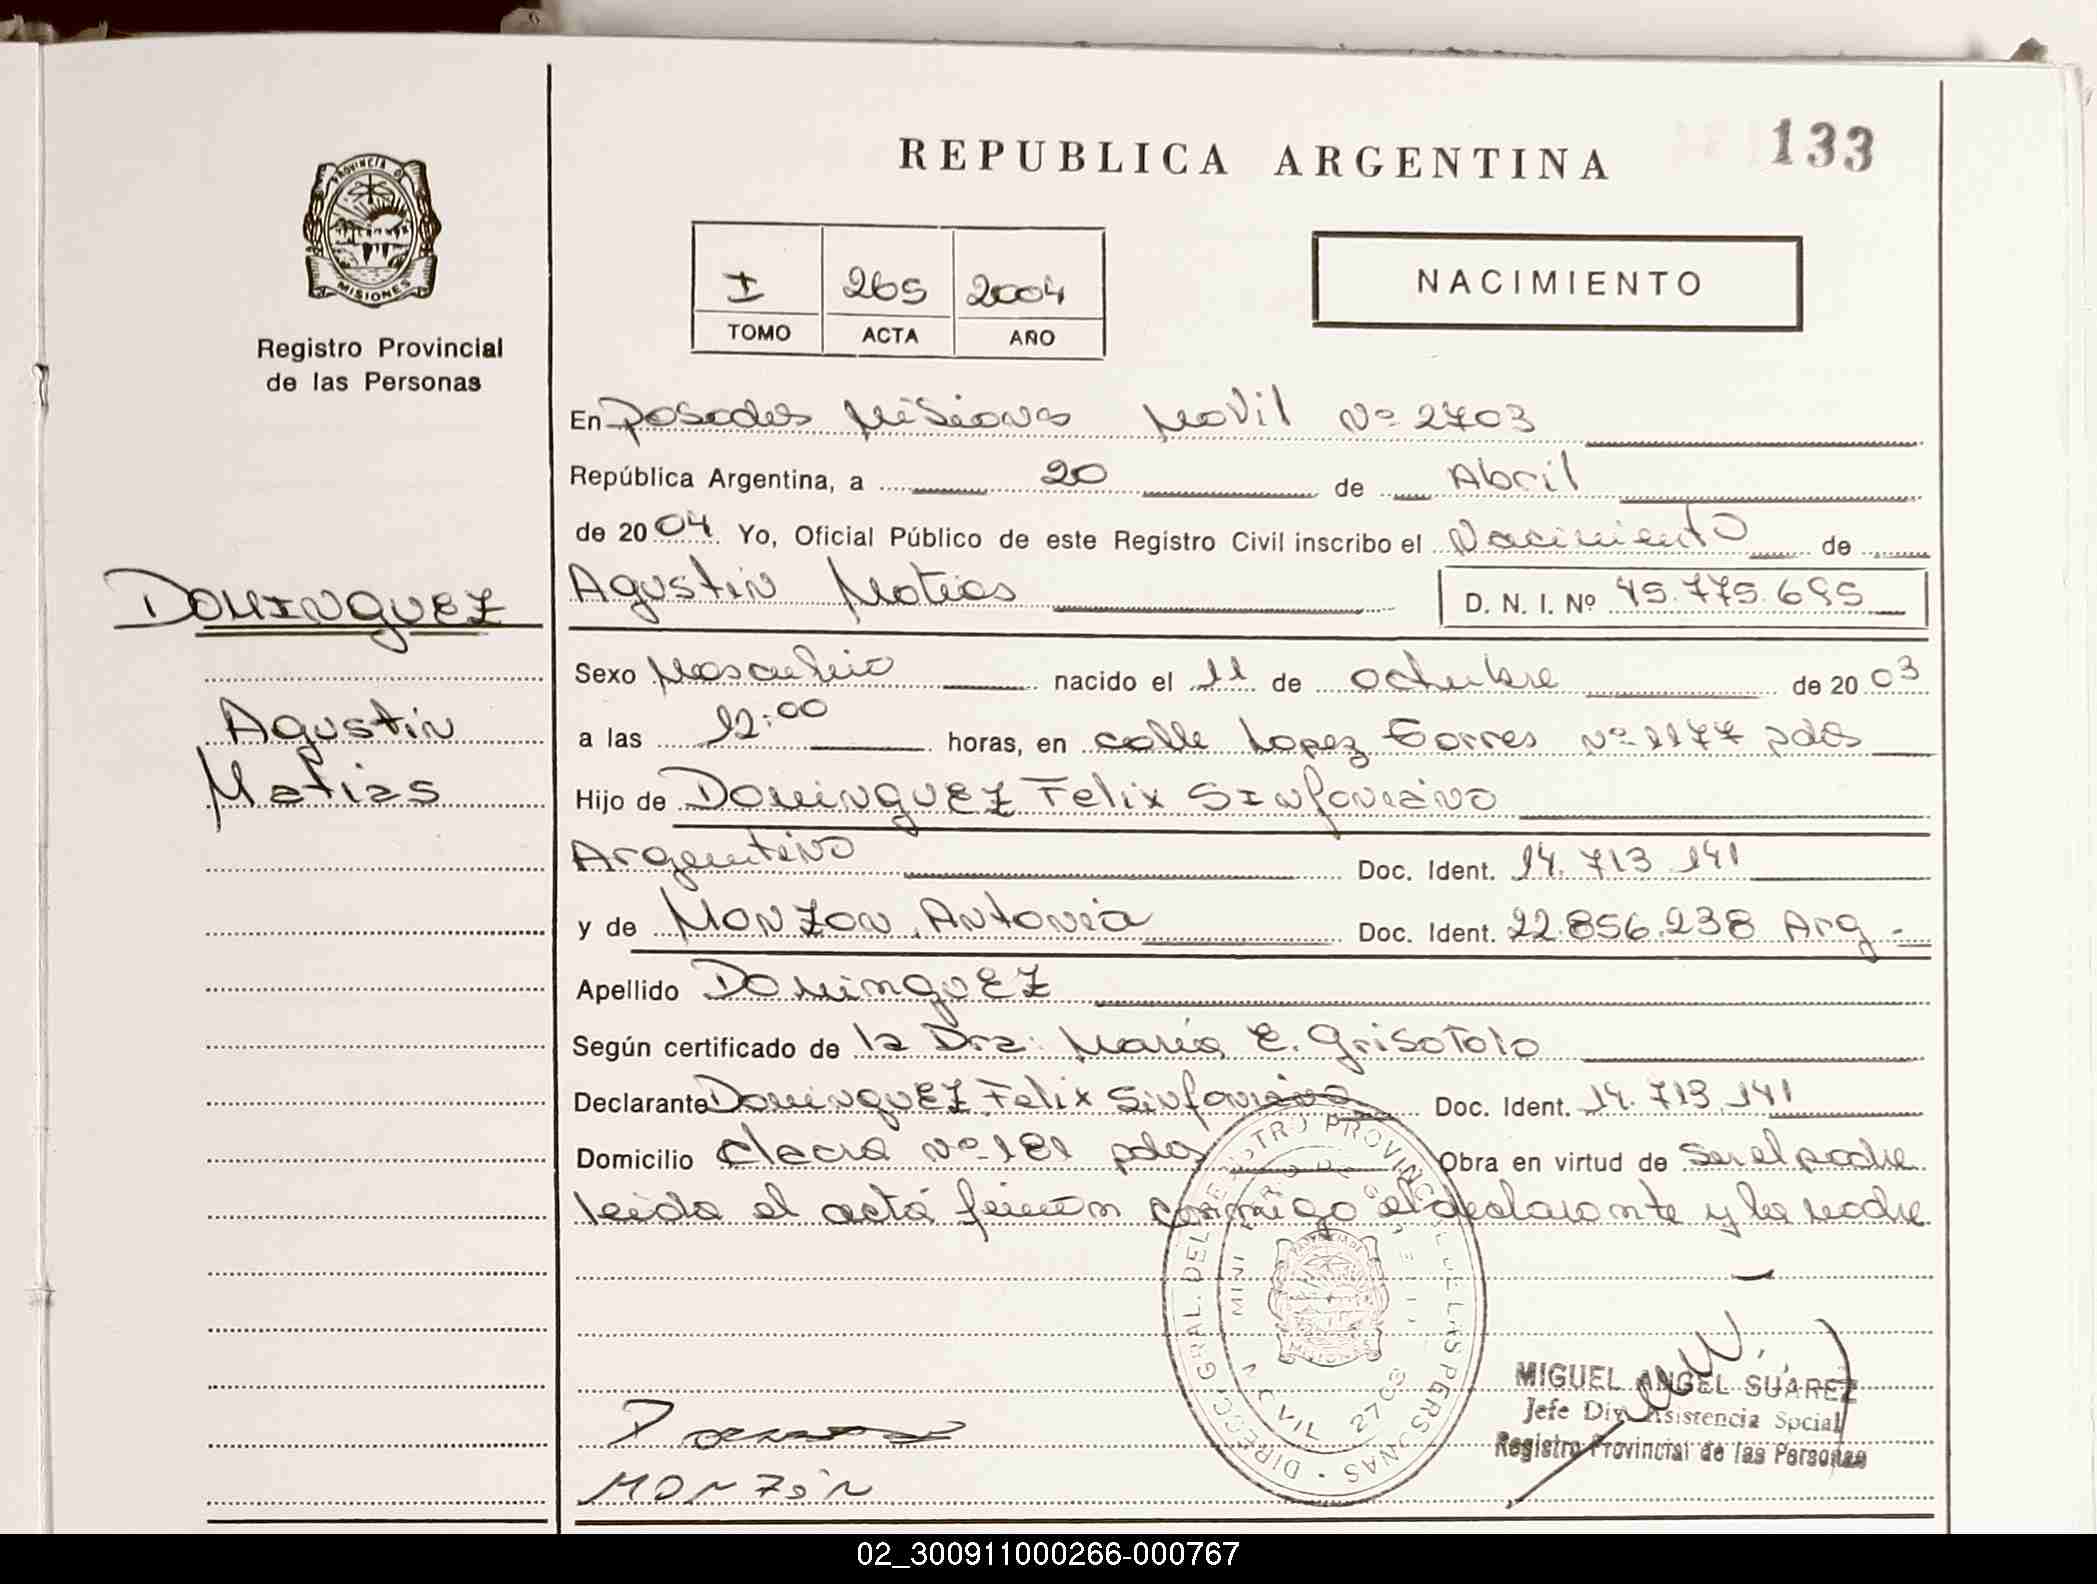 REPUBLICA ARGENTINA
133
PROVINCIA DE
MISIONES
Registro Provincial
de las Personas
I 265 2004
TOMO ACTA AÑO
NACIMIENTO
En Posadas Misiones Movil Nº 2703
República Argentina, a 20 de Abril
de 2004 Yo, Oficial Público de este Registro Civil inscribo el Nacimiento de
Agustin Matias D. N. I. Nº 45.775.695
DOMINGUEZ
Agustin
Matias
Sexo Masculino nacido el 11 de octubre de 2003
a las 12:00 horas, en calle Lopez Torres Nº 1177 pdas
Hijo de DOMINGUEZ Felix Sinforiano
Argentino Doc. Ident. 14.713.141
y de MONZON, Antonia Doc. Ident. 22.856.238 Arg -
Apellido DOMINGUEZ
Según certificado de la Dra: Maria E. Grisotolo
Declarante DOMINGUEZ Felix Sinforiano Doc. Ident. 14.713.141
Domicilio chacra Nº 181 pdas Obra en virtud de Ser el padre
leida el acta firman conmigo el declarante y la madre
DIRECC. GRAL. DEL REGISTRO PROVINCIAL DE LAS PERSONAS
2703
MISIONES
MIGUEL ANGEL SUAREZ
Jefe Div. Asistencia Social
Registro Provincial de las Personas
MONZÓN
02_300911000266-000767